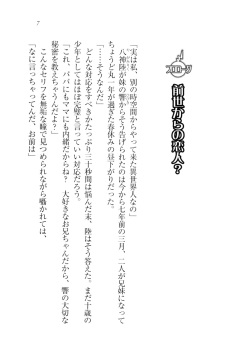 7
プロローグ
前世からの恋人？
「実は私、別の時空間からやって来た異世界人なの」
八神陸が妹の響からそう告げられたのは今から七年前の三月、二人が兄妹になって
ちょうど丸一年が過ぎた春休みの昼下がりだった。
「……そうなんだ」
どんな対応をすべきかたっぷり三十秒間は悩んだ末、陸はそう答えた。まだ十歳の
少年としてはほぼ完璧と言っていい対応だろう。
「これ、パパにもママにも内緒だからね？　大好きなお兄ちゃんだから、響の大切な
秘密を教えちゃうんだよ？」
こんなセリフを無垢な瞳で見つめられながら囁かれては、
「なに言っちゃってんだ、お前は」